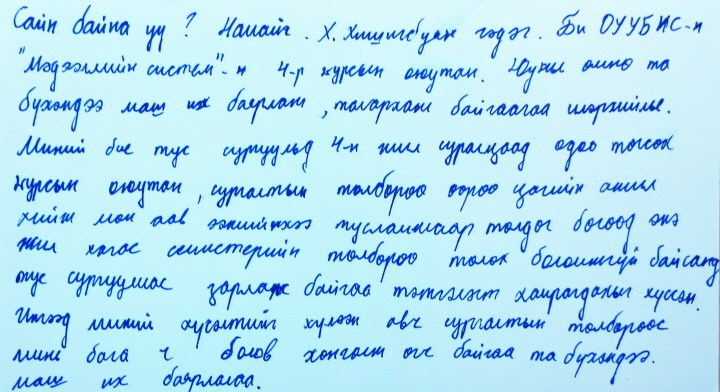 Сайн байна уу? Намайг Х. Хишигбуян гэдэг. Би ОУУБИС-н
"Мэдээллийн систем"-н 4-р курсын оюутан. Юуны өмнө та
бүхэндээ маш их баярлаж, талархаж байгаагаа илэрхийлье.
Миний бие тус сургуульд 4-н жил суралцаад одоо төгсөх
курсын оюутан, сургалтын төлбөрөө өөрөө цагийн ажил
хийж мөн аав ээжийнхээ тусламжаар төлдөг бөгөөд энэ
жил хагас семистерийн төлбөрөө төлөх боломжгүй байсанд
тус сургуулиас зарлаж байгаа тэтгэлэгт хамрагдахыг хүссэн.
Ингээд миний хүсэлтийг хүлээж авч сургалтын төлбөрөөс
минь бага ч болов хөнгөлж өгч байгаа та бүхэндээ.
маш их баярлалаа.